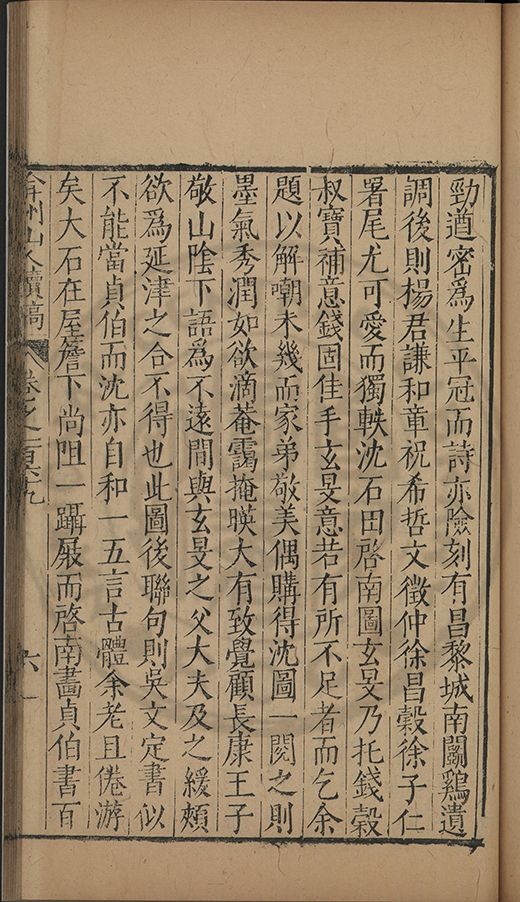 勁遒密爲生平冠而詩亦險刻有昌黎城南鬭鷄遺
調後則楊君謙和章祝希哲文徵仲徐昌穀徐子仁
署尾尤可愛而獨軼沈石田啓南圖玄旻乃托錢穀
叔寶補意錢固佳手玄旻意若有所不足者而乞余
題以解嘲未幾而家弟敬美偶購得沈圖一閱之則
墨氣秀潤如欲滴菴靄掩暎大有致覺顧長康王子
敬山陰下語爲不遠間與玄旻之父大夫及之緩頰
欲爲延津之合不得也此圖後聯句則吳文定書似
不能當貞伯而沈亦自和一五言古體余老且倦游
矣大石在屋簷下尚阻一躡屐而啓南畵貞伯書百
弇州山人續稿 卷之一百六十九 六